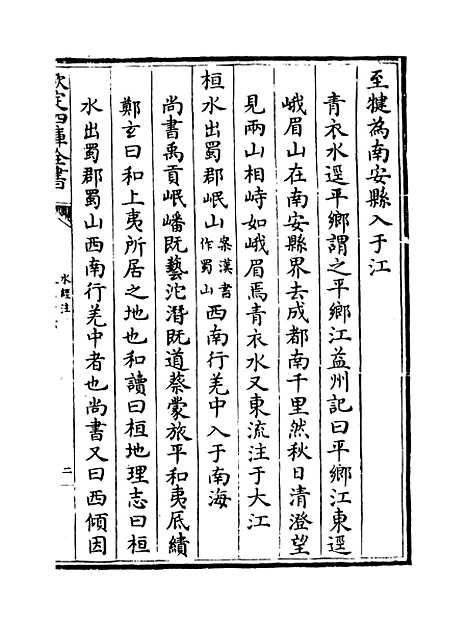 至犍為南安縣入于江
青衣水逕平鄉謂之平鄉江益州記曰平鄉江東逕
峨眉山在南安縣界去成都南千里然秋日清澄望
見兩山相峙如峨眉焉青衣水又東流注于大江
桓水出蜀郡岷山案漢書作蜀山西南行羌中入于南海
尚書禹貢岷嶓既藝沱潛既道蔡蒙旅平和夷厎績
鄭玄曰和上夷所居之地也和讀曰桓地理志曰桓
水出蜀郡蜀山西南行羌中者也尚書又曰西傾因
欽定四庫全書
水經注
二